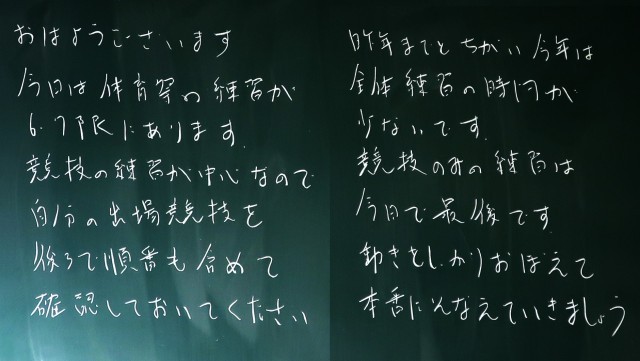 おはようございます
今日は体育祭の練習が
6.7限にあります。
競技の練習が中心なので
自分の出場競技を
後ろで順番も含めて
確認しておいてください
昨年までとちがい今年は
全体練習の時間が
少ないです。
競技のみの練習は
今日で最後です。
動きをしっかりおぼえて
本番にそなえていきましょう